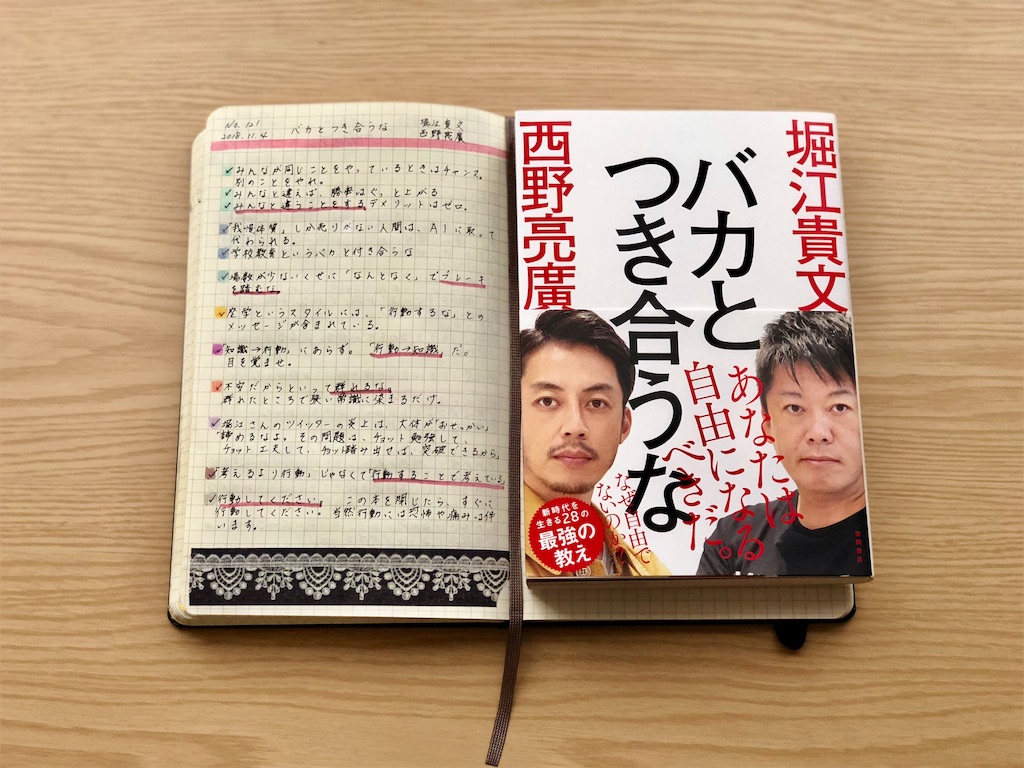 No.121
2018.11.4
バカとつき合うな
堀江貴文
西野亮廣
みんなが同じことをやっているときはチャンス。
別のことをやれ。
みんなと違えば、勝率はぐっと上がる
みんなと違うことをするデメリットはゼロ。
「我慢体質」しか売りがない人間は、AIに取って
代わられる。
学校教育というバカと付き合うな
場数が少ないくせに「なんとなく」でブレーキ
を踏むな
座学というスタイルには、「行動するな」との
メッセージが含まれている。
「知識→行動」にあらず。「行動→知識」だ。
目を覚ませ。
不安だからといって群れるな。
群れたところで狭い常識に染まるだけ。
堀江さんのツイッターの炎上は、大体が「おせっかい」
諦めるなよ。その問題は、チョット勉強して、
チョット工夫して、チョット踏み出せば、突破できるから。
「考えるより行動」じゃなくて「行動することで考えている」
行動してください。 この本を閉じたら、すぐに
行動してください。当然行動には恐怖や痛みは伴
います。
堀江貴文
バカと
つき合うな
西野亮廣
あなたは
自由になる
べきだ。
なぜ自由で
ないのか
新時代を
生きる28の
最強の
教え
徳間書店